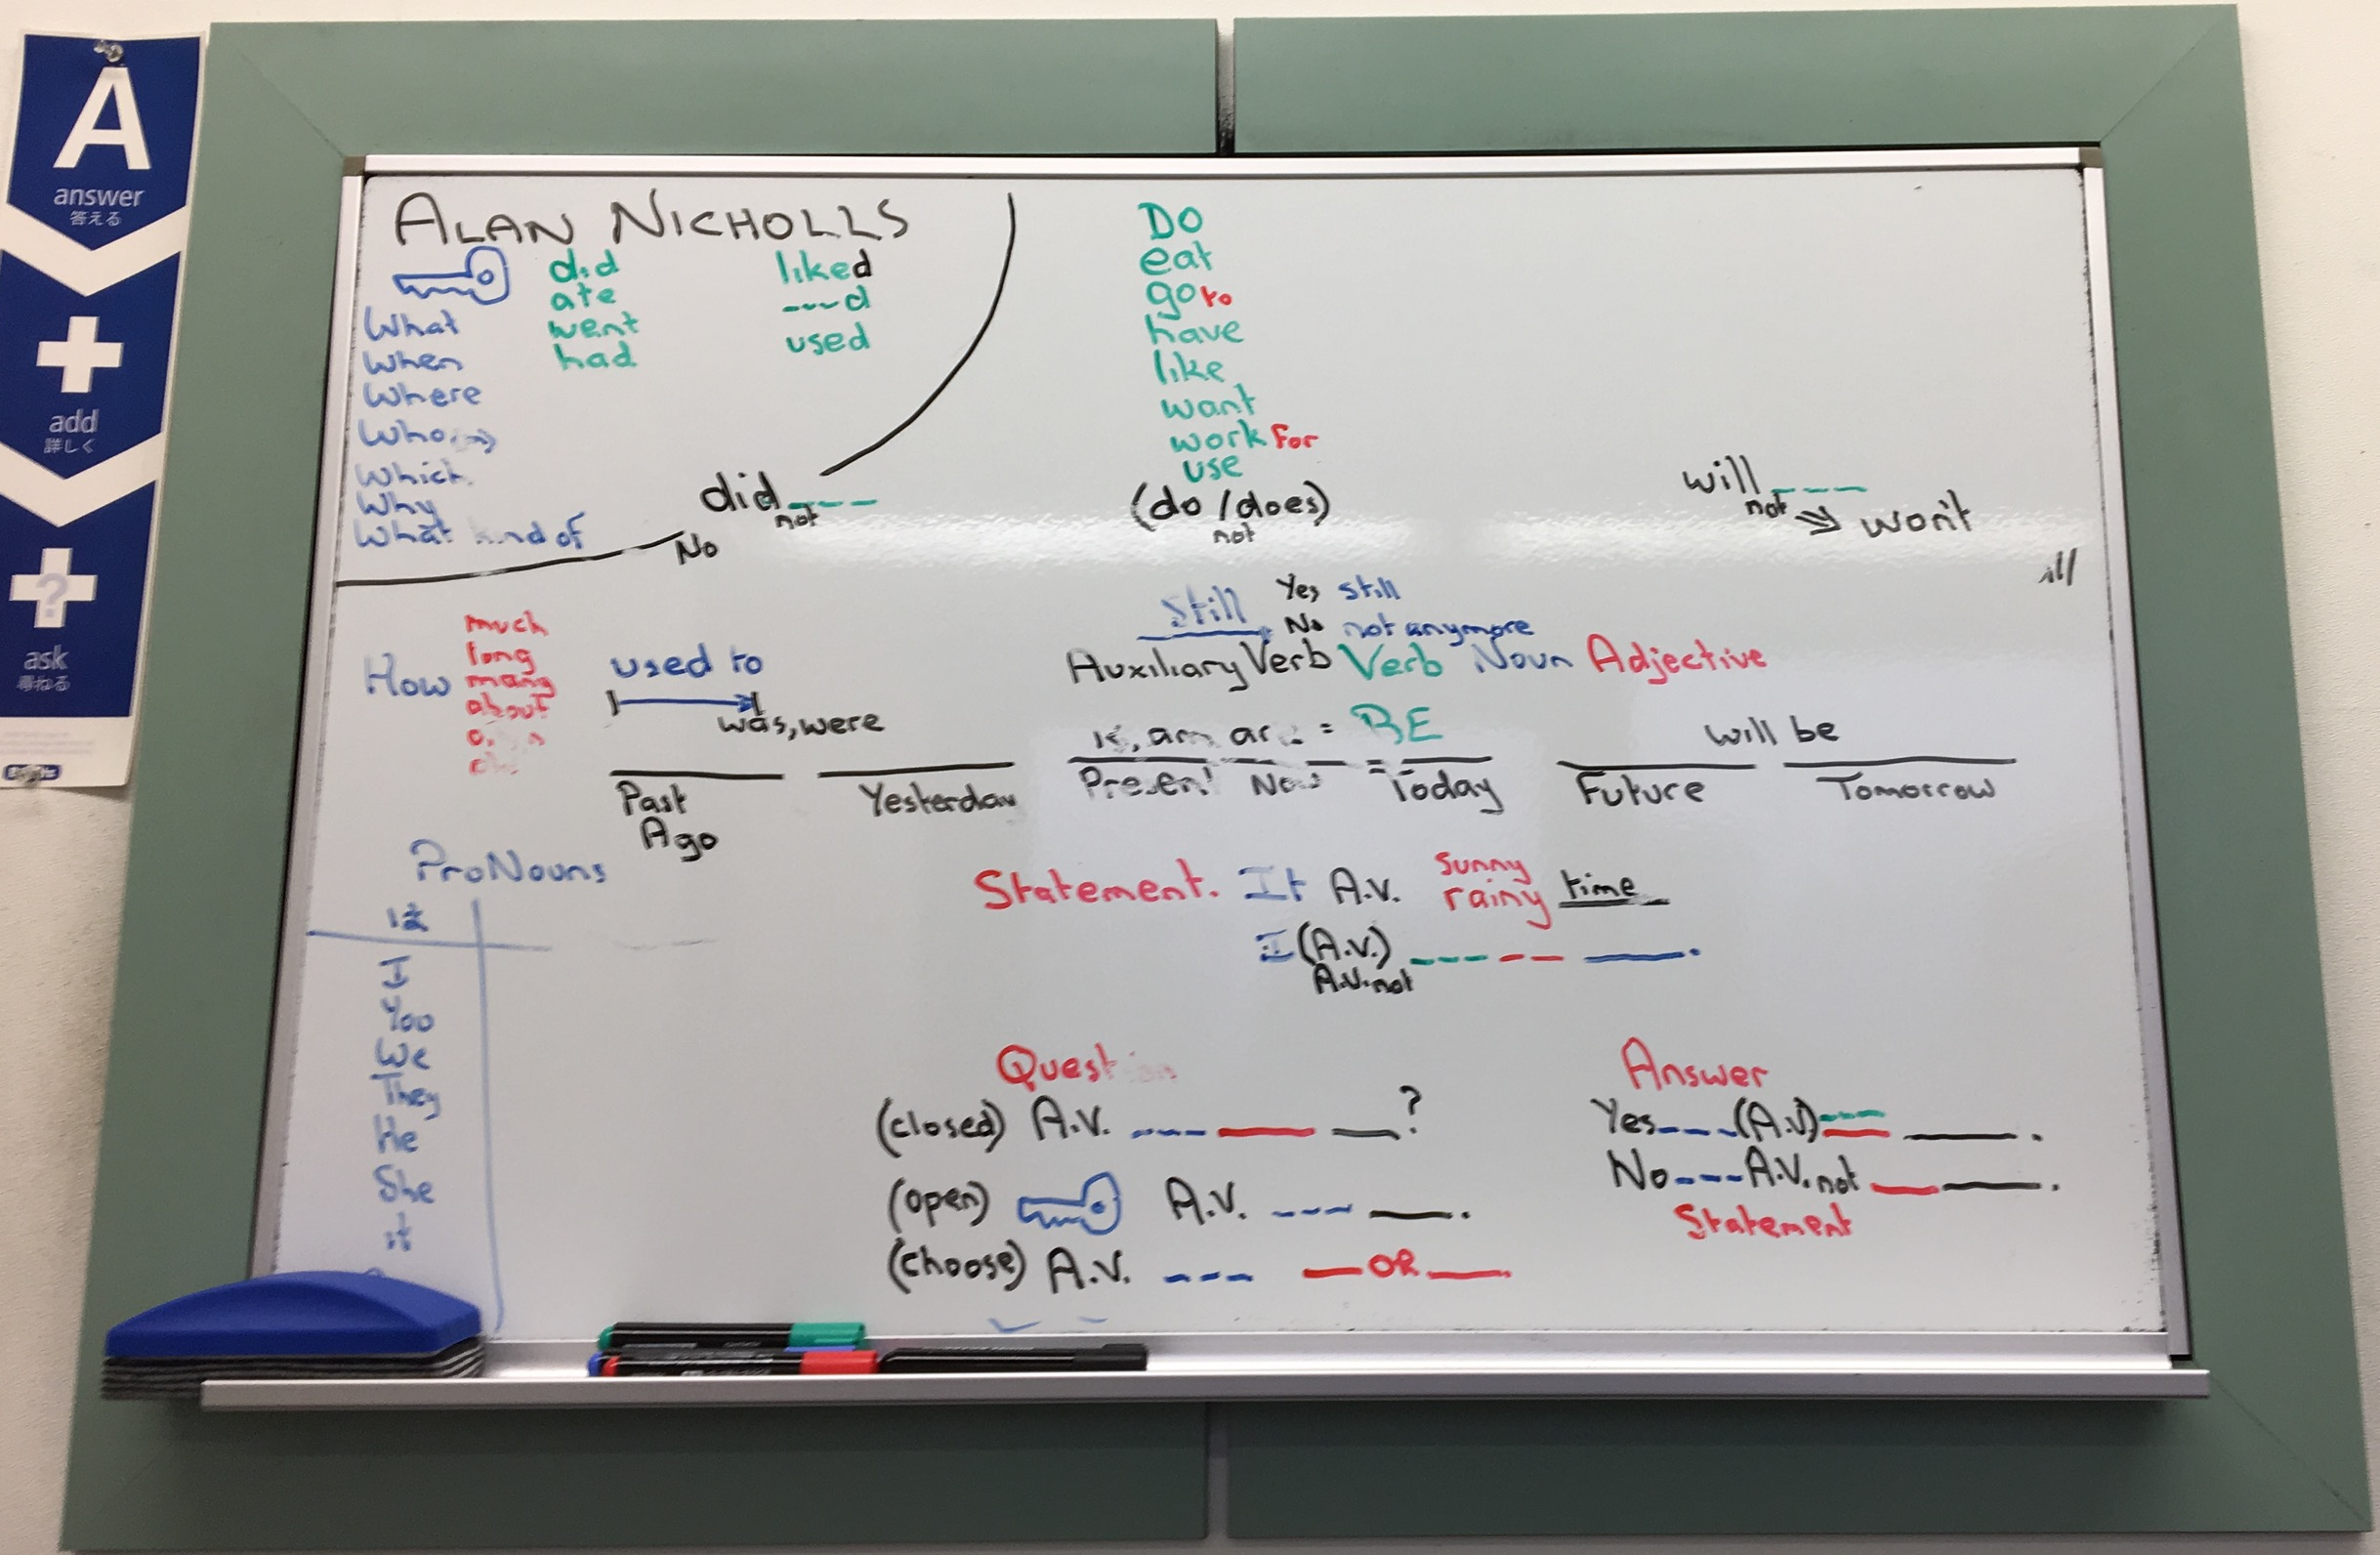 A
answer
答える
add
詳しく
?
ask
尋ねる
ALAN NICHOLLS
did liked
ate ----d
went used
had
What
When
Where
Who(m)
Which
Why
What kind of
did ---
not
No
DO
eat
go to
have
like
want
work for
use
(do / does)
not
will ---
not → won't
ill
How
much
long
many
about
used to
was, were
Still
Yes still
No not anymore
Auxiliary Verb Verb Noun Adjective
is, am = BE
will be
Past Yesterday Present Now = Today Future Tomorrow
Ago
ProNouns
は
I
You
We
They
He
She
it
Statement. It A.V. sunny rainy time
I (A.V.) --- -- __.
A.V. not
Question
(closed) A.V. --- __ __?
(open) A.V. --- __.
(choose) A.V. --- __ OR __.
Answer
Yes --- (A.V.) --- __ __.
No --- A.V. not __ __.
Statement